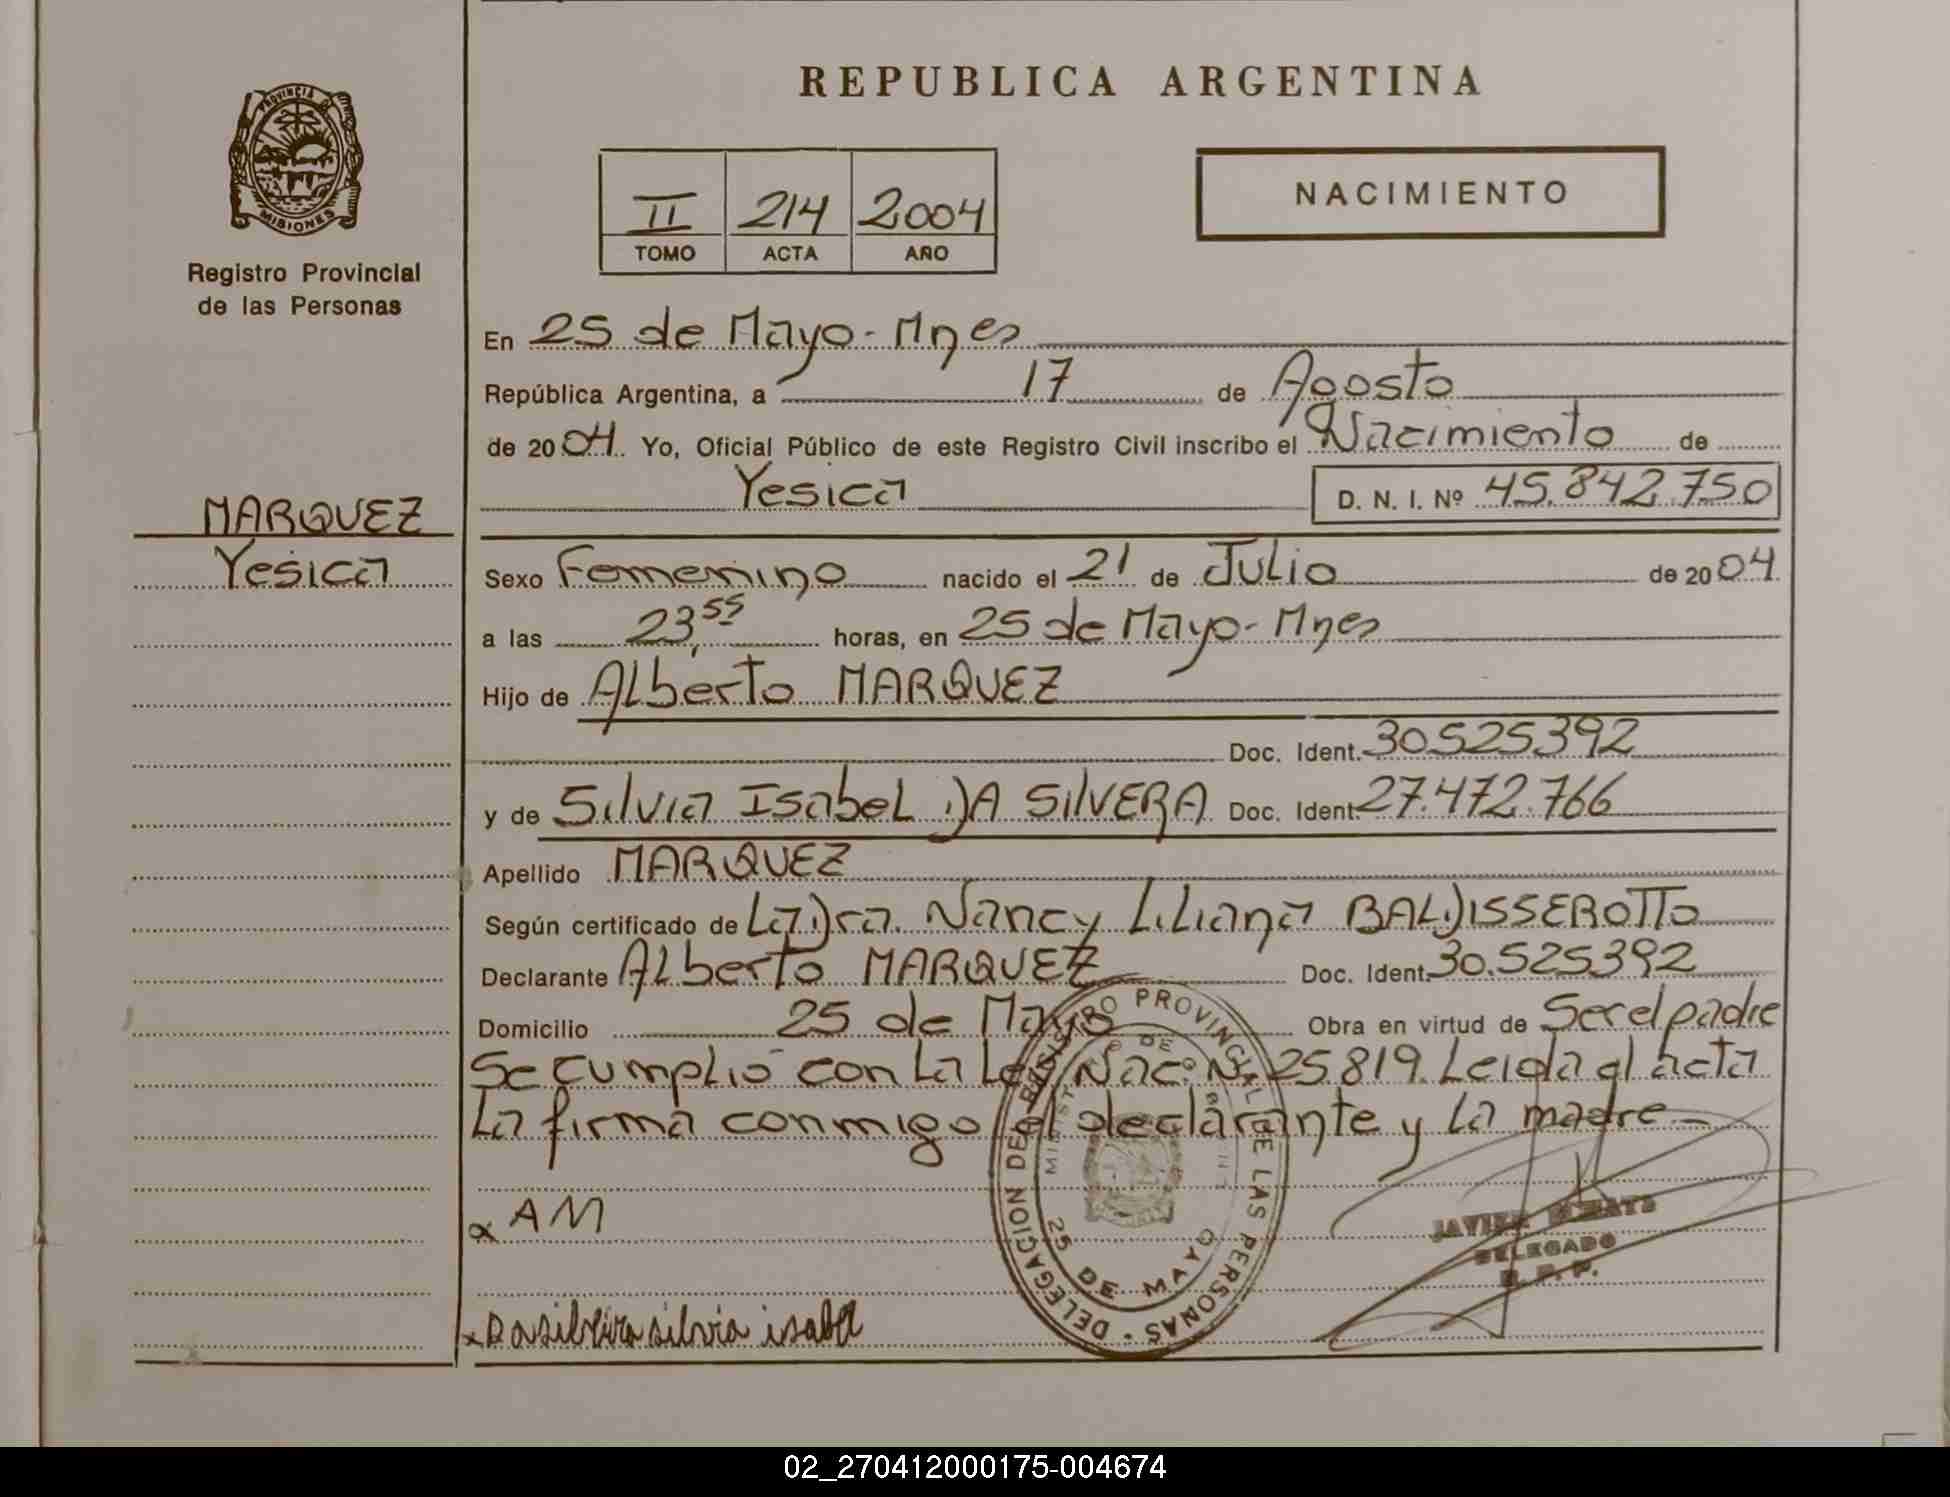 REPUBLICA ARGENTINA
PROVINCIA DE
MISIONES
Registro Provincial
de las Personas
II 214 2004
TOMO ACTA AÑO
NACIMIENTO
En 25 de Mayo - Mnes
República Argentina, a 17 de Agosto
de 2004. Yo, Oficial Público de este Registro Civil inscribo el Nacimiento de
Yesica D. N. I. Nº 45.842.750
MARQUEZ
Yesica
Sexo Femenino nacido el 21 de Julio de 2004
a las 23,55 horas, en 25 de Mayo - Mnes
Hijo de Alberto MARQUEZ
Doc. Ident. 30.525.392
y de Silvia Isabel DA SILVERA Doc. Ident. 27.472.766
Apellido MARQUEZ
Según certificado de La Dra. Nancy Liliana BALDISSEROTTO
Declarante Alberto MARQUEZ Doc. Ident. 30.525.392
Domicilio 25 de Mayo Obra en virtud de Ser el padre
Se cumplió con La Ley Nac. Nº 25.819. Leida el acta
La firma conmigo el declarante y La madre
x AM
x Dasilveira silvia isabel
DELEGACION DEL REGISTRO PROVINCIAL DE LAS PERSONAS
25 DE MAYO
JAVIER
DELEGADO
R. P. P.
02_270412000175-004674